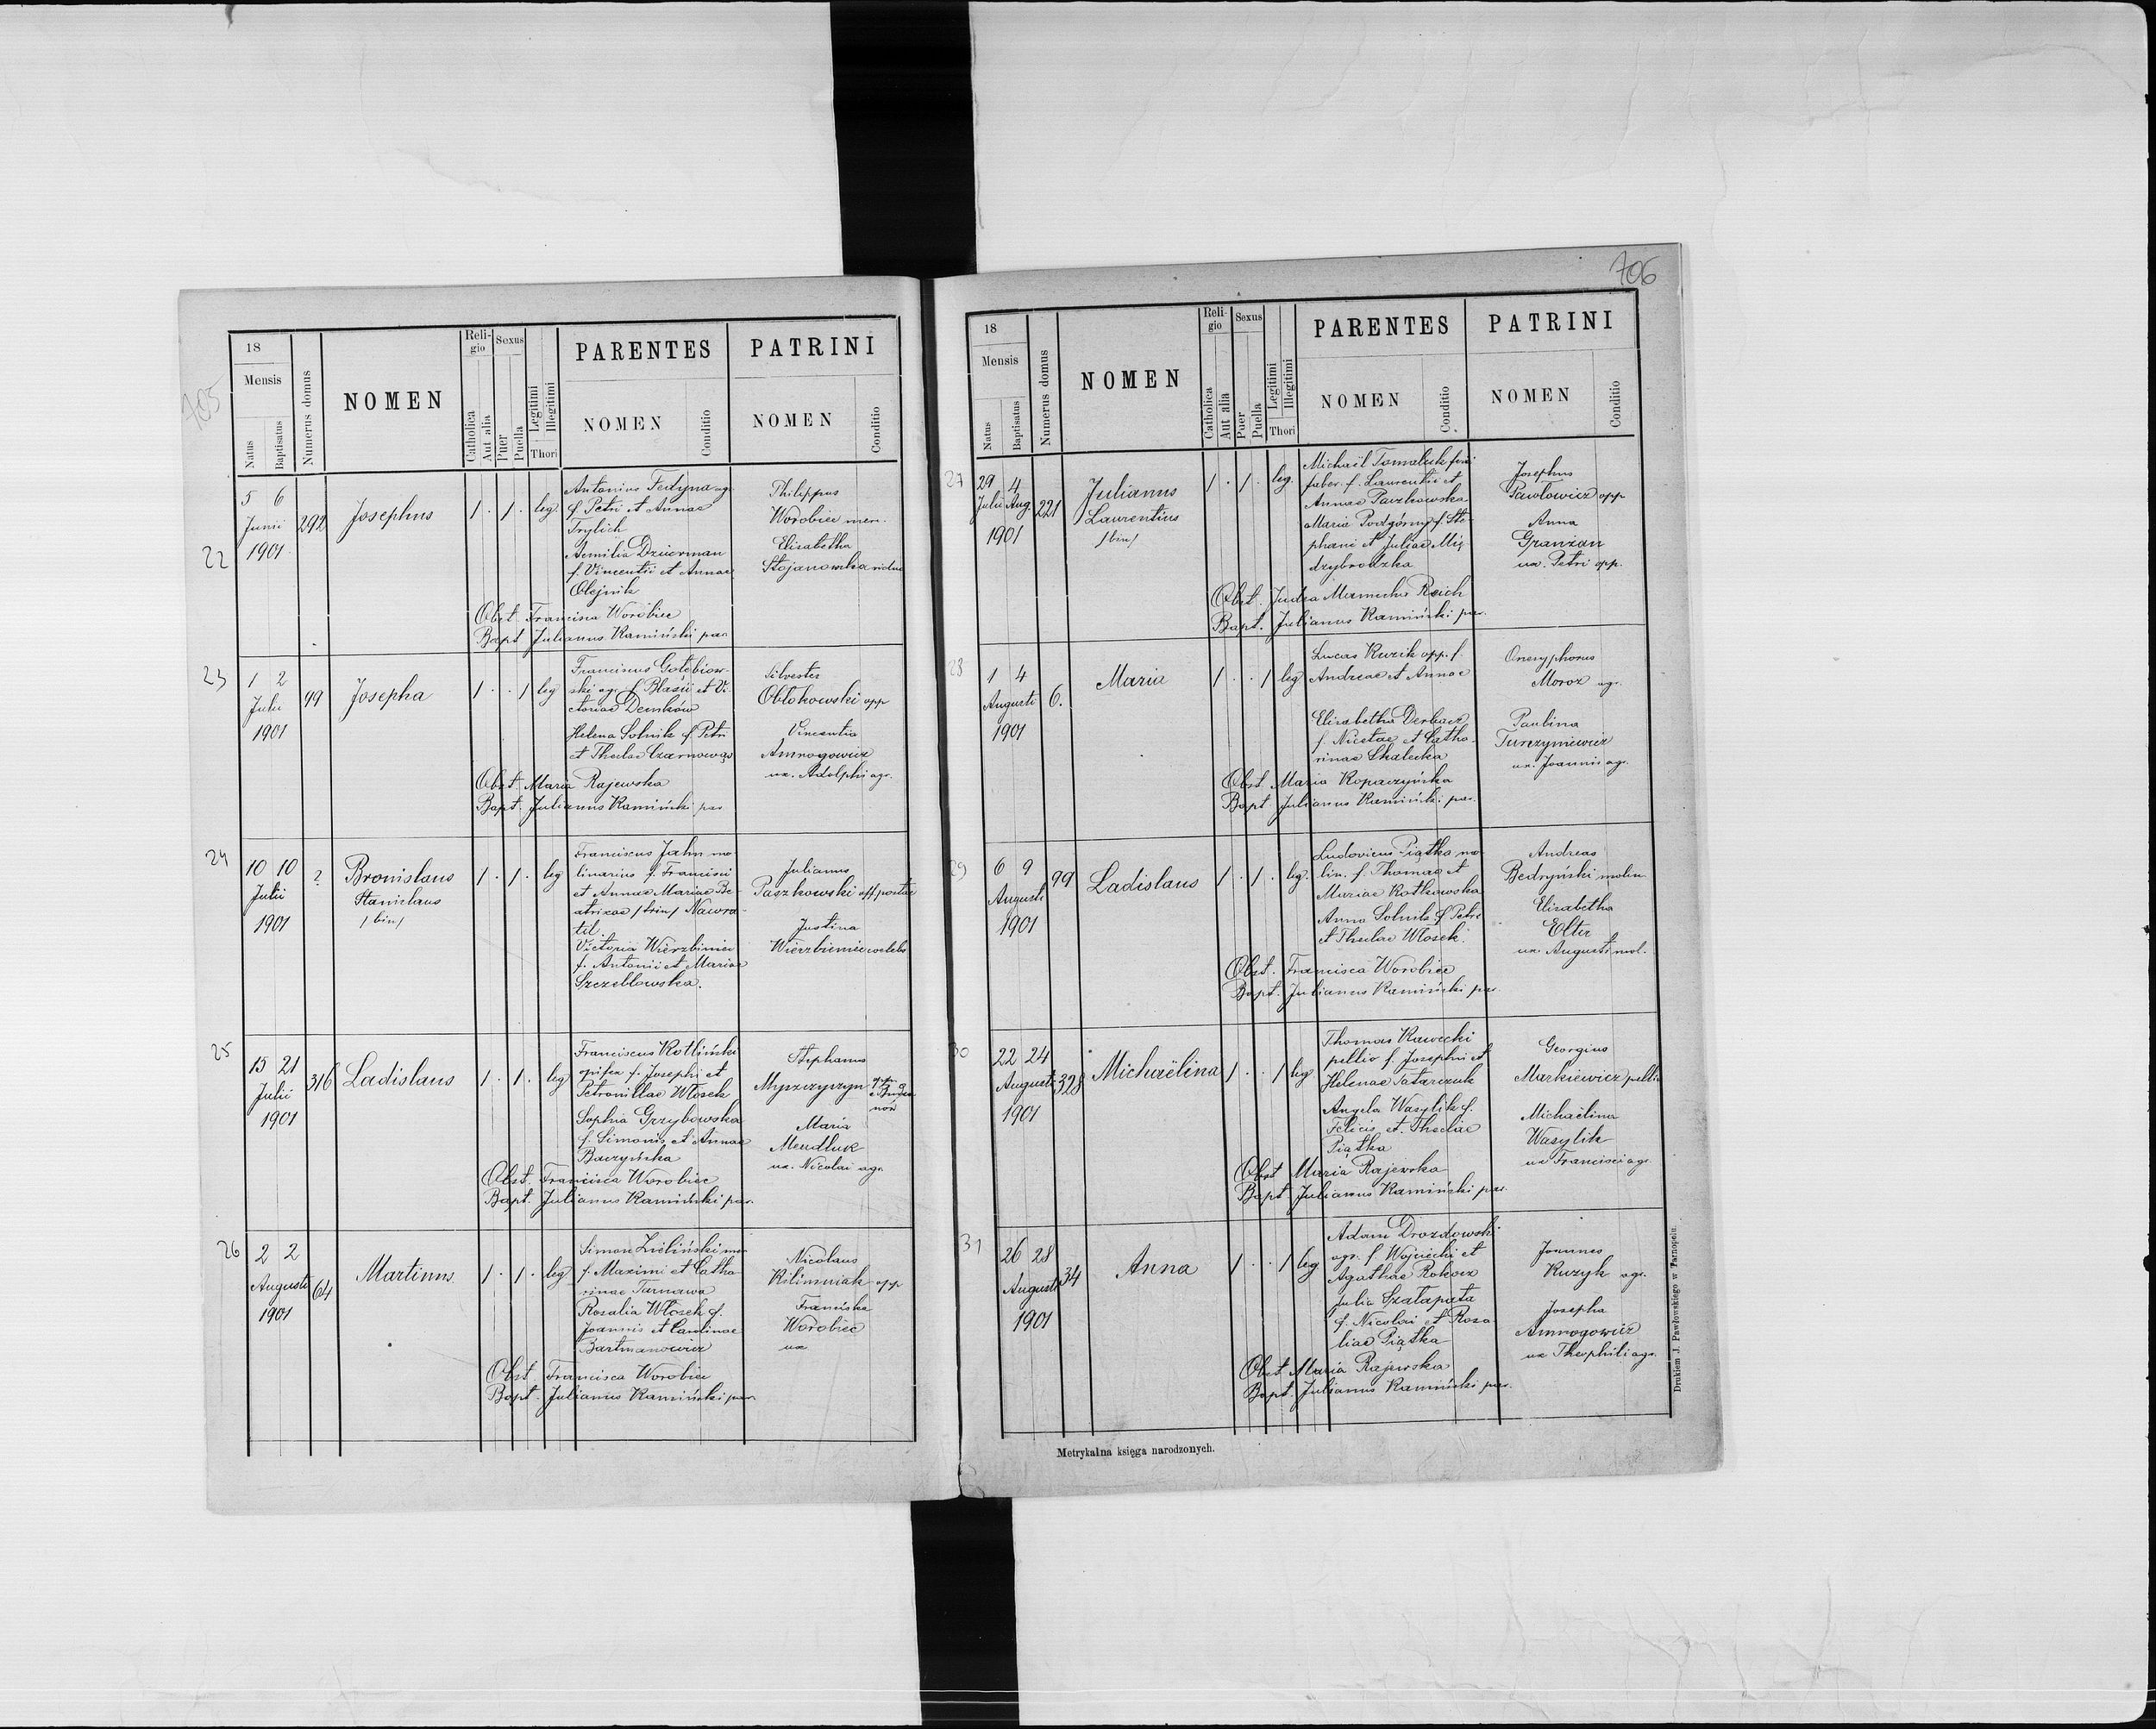 705
18
Mensis
Natus
Baptisatus
Numerus domus
NOMEN
Reli-
gio
Catholica
Aut alia
Sexus
Puer
Puella
Legitimi
Illegitimi
Thori
PARENTES
NOMEN
Conditio
PATRINI
NOMEN
Conditio
22
5 6
Junii
1901
292
Josephus
1 . 1 . leg
Antonius Fedyna ag.
f. Petri et Annae
Trylich
Aemilia Dzicerman
f. Vincentii et Annae
Olejnik
Philippus
Worobiec mer.
Elisabetha
Stojanowska vidua
Obst. Francisca Worobiec
Bapt. Julianus Kamiński par.
23
1 2
Julii
1901
49
Josepha
1 . . 1 leg
Franciscus Gołębiow-
ski ag. f. Blasii et Vi-
ctoriae Demków
Helena Solnik f. Petri
et Theclae Czarnowąs
Silvester
Obłokowski opp
Vincentia
Amrogowicz
ux. Adolphi agr.
Obst. Maria Rajewska
Bapt. Julianus Kamiński par
24
10 10
Julii
1901
?
Bronislaus
Stanislaus
/bin/
1 . 1 . leg
Franciscus Jahn mo-
linarius f. Francisci
et Annae Mariae Be-
atricae /trin/ Nawra-
til.
Victoria Wierzbiniec
f. Antonii et Mariae
Szczebłowska.
Julianus
Paszkowski off. postae
Justina
Wierzbiniec coelebs
25
15 21
Julii
1901
316
Ladislaus
1 . 1 . leg
Franciscus Kotliński
opifex f. Josephi et
Petronillae Włosek
Sophia Grzybowska
f. Simonis et Annae
Baczyńska
Stephanus
Myszczyszyn opp.
Maria
Mendluk
ux. Nicolai agr.
Obst. Francisca Worobiec
Bapt. Julianus Kamiński par.
26
2 2
Augusti
1901
64
Martinus.
1 . 1 . leg
Simon Zieliński mer
f. Maximi et Catha-
rinae Tarnawa
Rosalia Włosek f.
Joannis et Carolinae
Bartmanowicz
Nicolaus
Kilimniak opp
Franciska
Worobiec
ux
Obst. Francisca Worobiec
Bapt. Julianus Kamiński par.
706
18
Mensis
Natus
Baptisatus
Numerus domus
NOMEN
Reli-
gio
Catholica
Aut alia
Sexus
Puer
Puella
Legitimi
Illegitimi
Thori
PARENTES
NOMEN
Conditio
PATRINI
NOMEN
Conditio
27
29 4
Julii Aug.
1901
221
Julianus
Laurentius
/bin/
1 . 1 . leg.
Michaël Tomaluk
faber. f. Laurentii et
Annae Paczkowska
Maria Podgórny f. Ste-
phani et Juliae Mię-
dzybrodzka
Josephus
Pawłowicz opp
Anna
Granzan
ux. Petri opp.
Obst. Judea Reich
Bapt. Julianus Kamiński par.
28
1 4
Augusti
1901
6.
Maria
1 . . 1 leg
Lucas Kuzik opp. f.
Andreae et Annae
Elisabetha Derkacz
f. Nicetae et Catha-
rinae Skalecka
Onesyphorus
Moroz agr.
Paulina
Turczyniewicz
ux. Joannis ag.
Obst. Maria Kopaczyńska
Bapt. Julianus Kamiński par.
29
6 9
Augusti
1901
99
Ladislaus
1 . 1 . leg.
Ludovicus Piątka mo-
lin. f. Thomae et
Mariae Kotkowska
Anna Solnik f. Petri
et Theclae Włosek.
Andreas
Bedryński molin
Elisabetha
Elter
ux. Augusti mol.
Obst. Francisca Worobiec
Bapt. Julianus Kamiński par.
30
22 24
Augusti
1901
328
Michaëlina
1 . . 1 leg
Thomas Kawecki
pellio f. Josephi et
Helenae Tatarczuk
Angela Wasylik f.
Felicis et Theclae
Piątka
Georgius
Markiewicz pellio
Michaëlina
Wasylik
ux Francisci ag.
Obst Maria Rajewska
Bapt Julianus Kamiński par.
31
26 28
Augusti
1901
34
Anna
1 . . 1 leg
Adam Drozdowski
agr. f. Wojciechi et
Agathae Rokosz
Julia Szałapata
f. Nicolai et Rosa
liae Piątka
Joannes
Kuzyk agr.
Josepha
Amrogowicz
ux Theophili agr.
Obst Maria Rajewska
Bapt. Julianus Kamiński par.
Metrykalna księga narodzonych.
Drukiem J. Pawłowskiego w Tarnopolu.